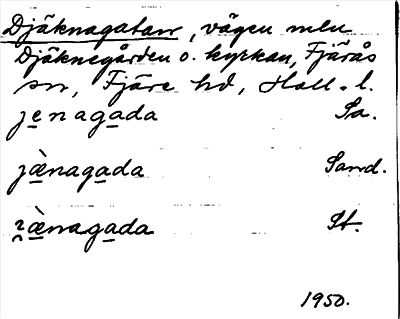 Djäknagatan, vägen mln
Djäknegården o. kyrkan, Fjärås
sn, Fjäre hd, Hall. l.
jenagada Sa.
jænagada Sand.
ɿænagada St.
1950.